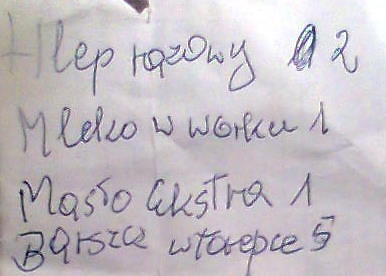 Hlep razowy 2
Mleko w worku 1
Masło Ekstra 1
Barszcz w torepce 5